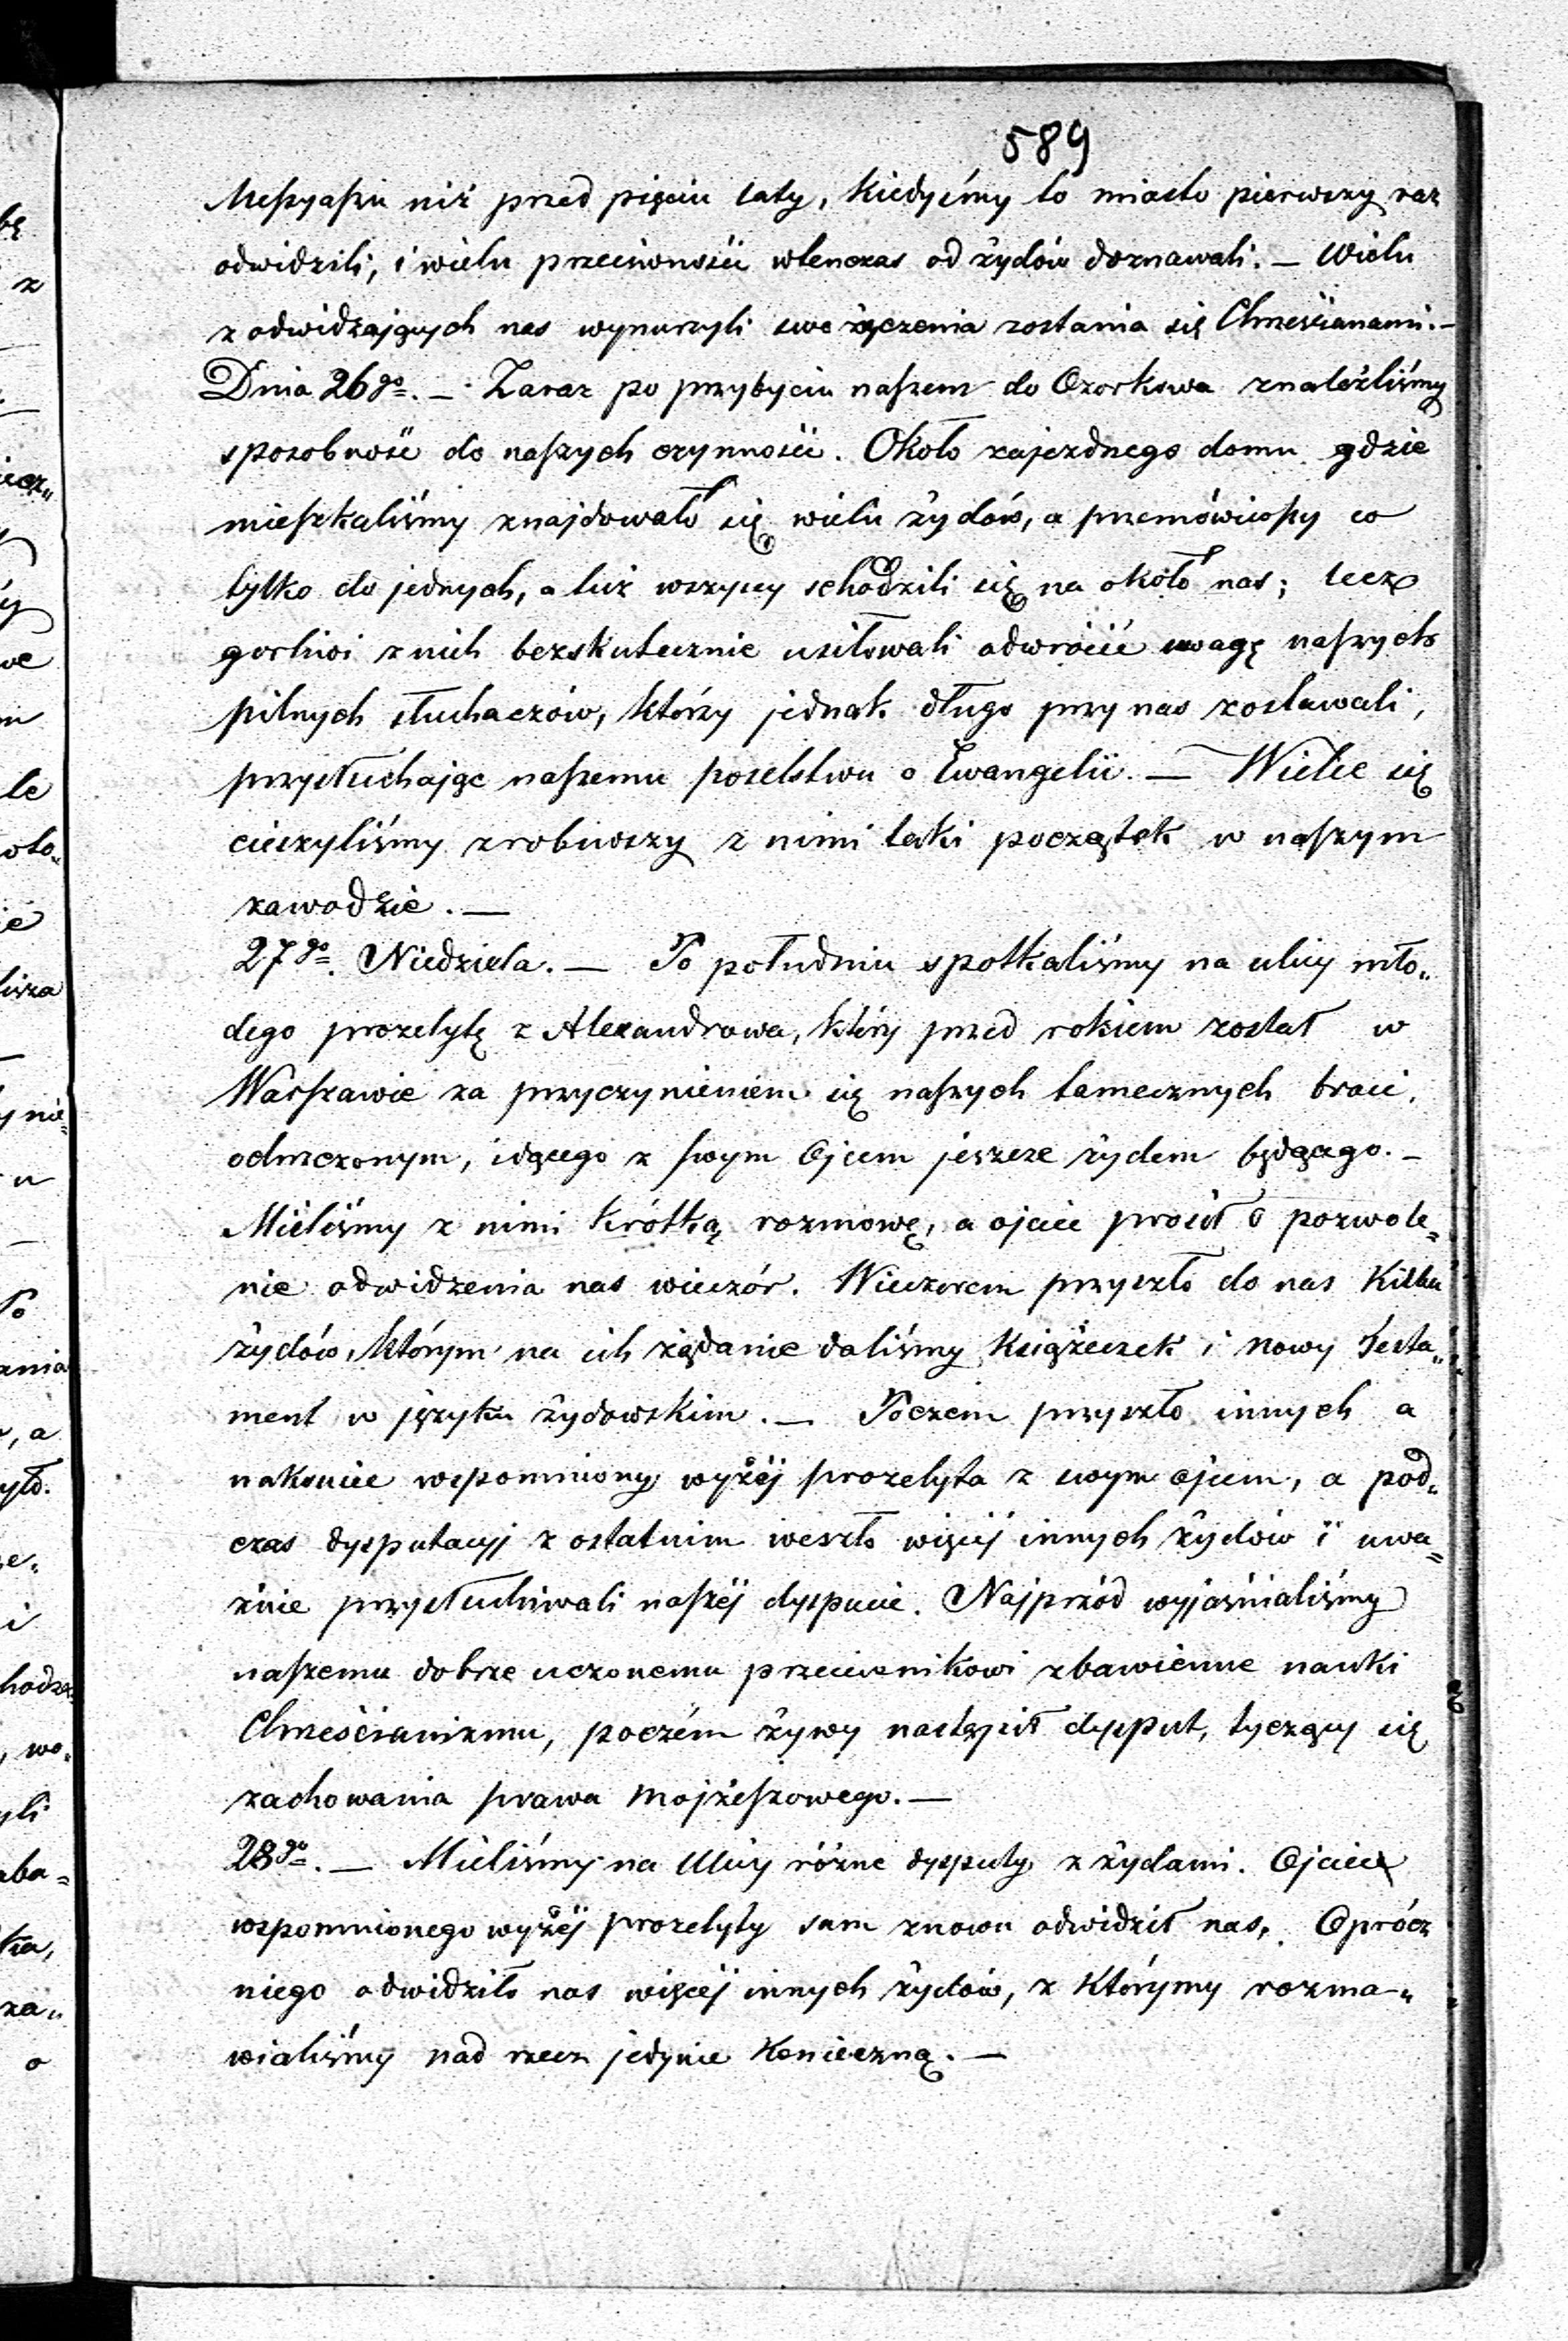 589
Messyaszu niż przed pięciu laty, kiedyśmy to miasto pierwszy raz
odwidzili, i wielu przeciwności wtenczas od żydów doznawali. — Wielu
z odwidzających nas wynurzyli swe życzenia zostania się Chrześcianami. —
Dnia 26go. — Zaraz po przybyciu naszem do Ozorkowa znaleźliśmy
sposobność do naszych czynności. Około zajezdnego domu gdzie
mieszkaliśmy znajdowało się wielu żydów, a przemówiwszy co
tylko do jednych, a tuż wszyscy schodzili się na około nas; lecz
gorliwi z nich bezskutecznie usiłowali odwrócić uwagę naszych
pilnych słuchaczów, którzy jednak długo przy nas zostawali,
przysłuchając naszemu poselstwu o Ewangelii. — Wielce się
cieszyliśmy zrobiwszy z nimi taki początek w naszym
zawodzie. —
27go. Niedziela. — Po południu spotkaliśmy na ulicy mło„
dego prozelytę z Alexandrowa, który przed rokiem został w
Warszawie za przyczynieniem się naszych tamecznych braci,
ochrzczonym, idącego z swym Ojcem jeszcze żydem będącego. —
Mieliśmy z nimi krótką rozmowę, a ojciec prosił o pozwole„
nie odwidzenia nas wieczór. Wieczorem przyszło do nas kilku
żydów, którym na ich żądanie daliśmy książeczek i nowy Testa„
ment w języku żydowskim. — Poczem przyszło innych a
nakoniec wspomniony wyżéj prozelyta z swym ojcem, a pod„
czas dysputacyj z ostatnim weszło więcéj innych żydów i uwa„
żnie przysłuchiwali naszéj dyspucie. Najprzód wyjaśnialiśmy
naszemu dobrze uczonemu przeciwnikowi zbawienne nauki
Chrześcianizmu, poczém żywy nastąpił dysput, tyczący się
zachowania prawa Mojżeszowego. —
28go. — Mieliśmy na Ulicy różne dysputy z żydami. Ojciec
wspomnionego wyżéj prozelyty sam znowu odwidził nas. Oprócz
niego odwidziło nas więcéj innych żydów, z którymy rozma„
wialiśmy nad rzecz jedynie konieczną. —